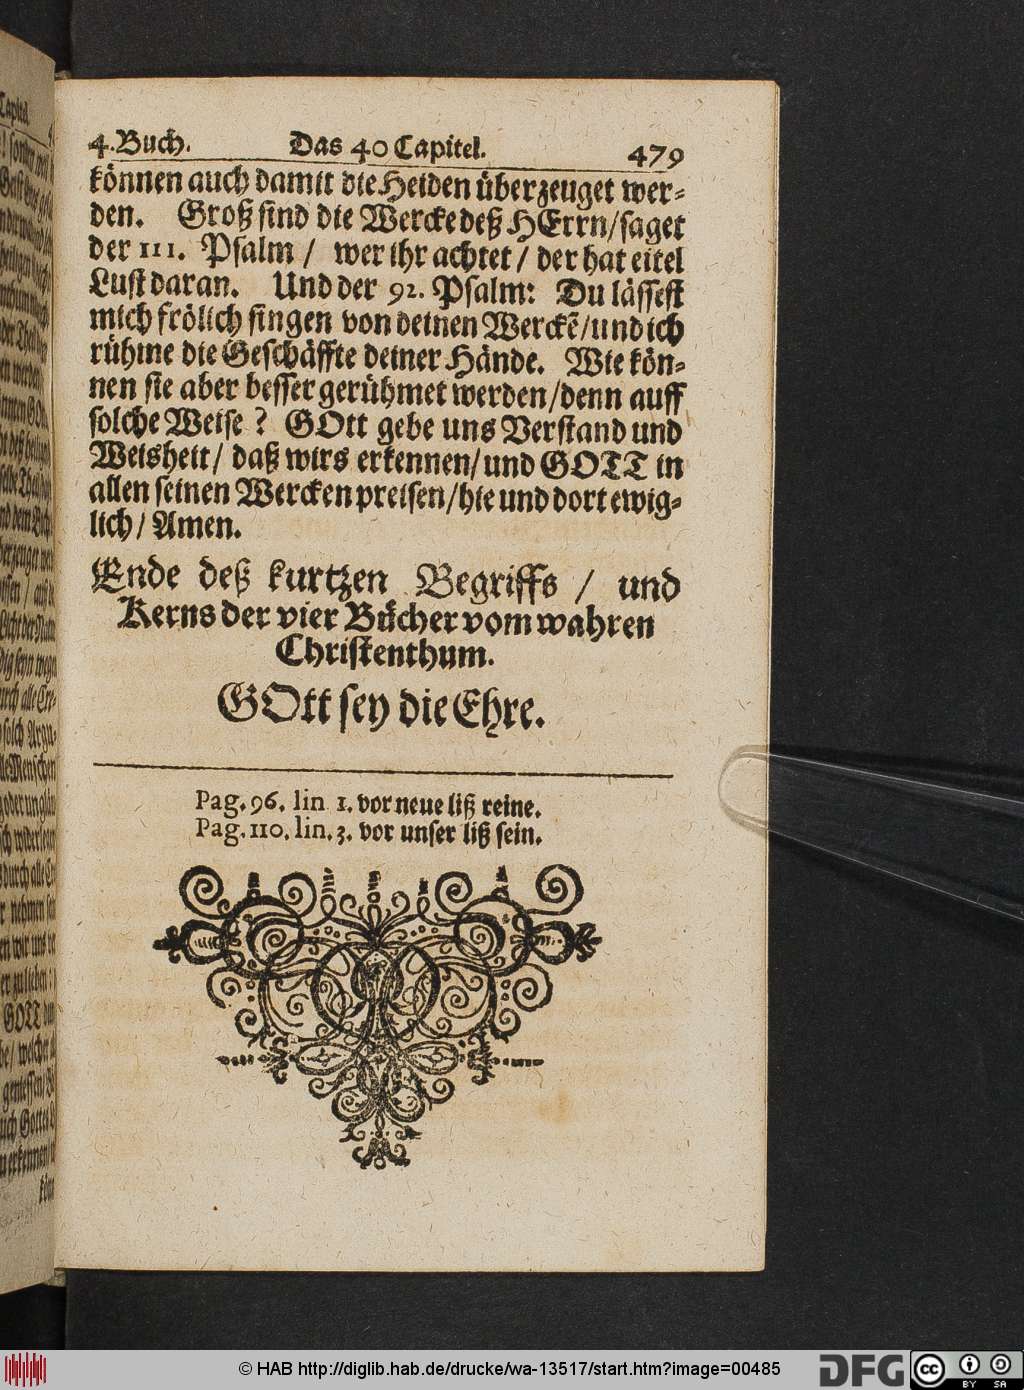 4. Buch. Das 40 Capitel. 479
können auch damit die Heiden überzeuget wer-
den. Groß sind die Wercke deß HErrn/ saget
der 111. Psalm / wer ihr achtet / der hat eitel
Lust daran. Und der 92. Psalm: Du lässest
mich frölich singen von deinen Werckẽ/ und ich
rühme die Geschäffte deiner Hände. Wie kön-
nen sie aber besser gerühmet werden/ denn auff
solche Weise ? GOtt gebe uns Verstand und
Weisheit/ daß wirs erkennen/ und GOTT in
allen seinen Wercken preisen/ hie und dort ewig-
lich / Amen.
Ende deß kurtzen Begriffs / und
Kerns der vier Bücher vom wahren
Christenthum.
GOtt sey die Ehre.
Pag. 96. lin 1. vor neue liß reine.
Pag. 110. lin. 3. vor unser liß sein.
© HAB http://diglib.hab.de/drucke/wa-13517/start.htm?image=00485
DFG
cc BY SA